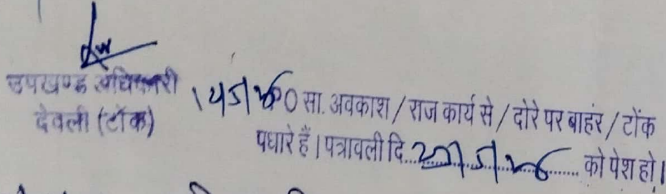 उपखण्ड अधिकारी
देवली (टोंक)
सा. अवकाश / राज कार्य से / दोरे पर बाहर / टोंक
पधारे हैं। पत्रावली दि. को पेश हो।